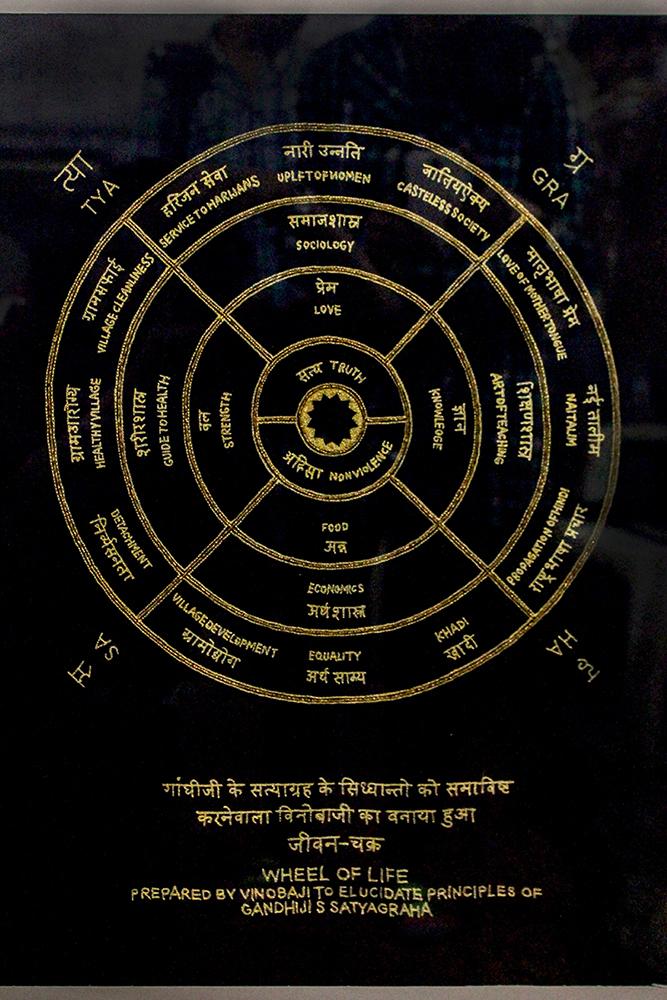 त्या
TYA
ग्र
GRA
हरिजन सेवा
SERVICE TO HARIJANS
नारी उन्नति
UPLFT OF WOMEN
जातियऐक्य
CASTELESS SOCIETY
समाजशास्त्र
SOCIOLOGY
प्रेम
LOVE
ग्रामसफाई
VILLAGE CLEANLINESS
मातृभाषा प्रेम
LOVE OF MOTHERTONGUE
सत्य TRUTH
ग्रामआरोग्य
HEALTHY VILLAGE
शरीरशास्त्र
GUIDE TO HEALTH
बल
STRENGTH
ज्ञान
KNOWLEDGE
शिक्षाशास्त्र
ART OF TEACHING
नई तालीम
NAITALIM
अहिंसा NONVIOLENCE
DETACHMENT
PROPAGATION OF HINDI
राष्ट्रभाषा प्रचार
FOOD
अन्न
ECONOMICS
अर्थशास्त्र
VILLAGE DEVELOPMENT
ग्रामोद्योग
EQUALITY
अर्थ साम्य
KHADI
खादी
SA
स
HA
ह
गांधीजी के सत्याग्रह के सिध्धान्तो को समाविष्ट
करनेवाला विनोबाजी का बनाया हुआ
जीवन-चक्र
WHEEL OF LIFE
PREPARED BY VINOBAJI TO ELUCIDATE PRINCIPLES OF
GANDHIJI S SATYAGRAHA